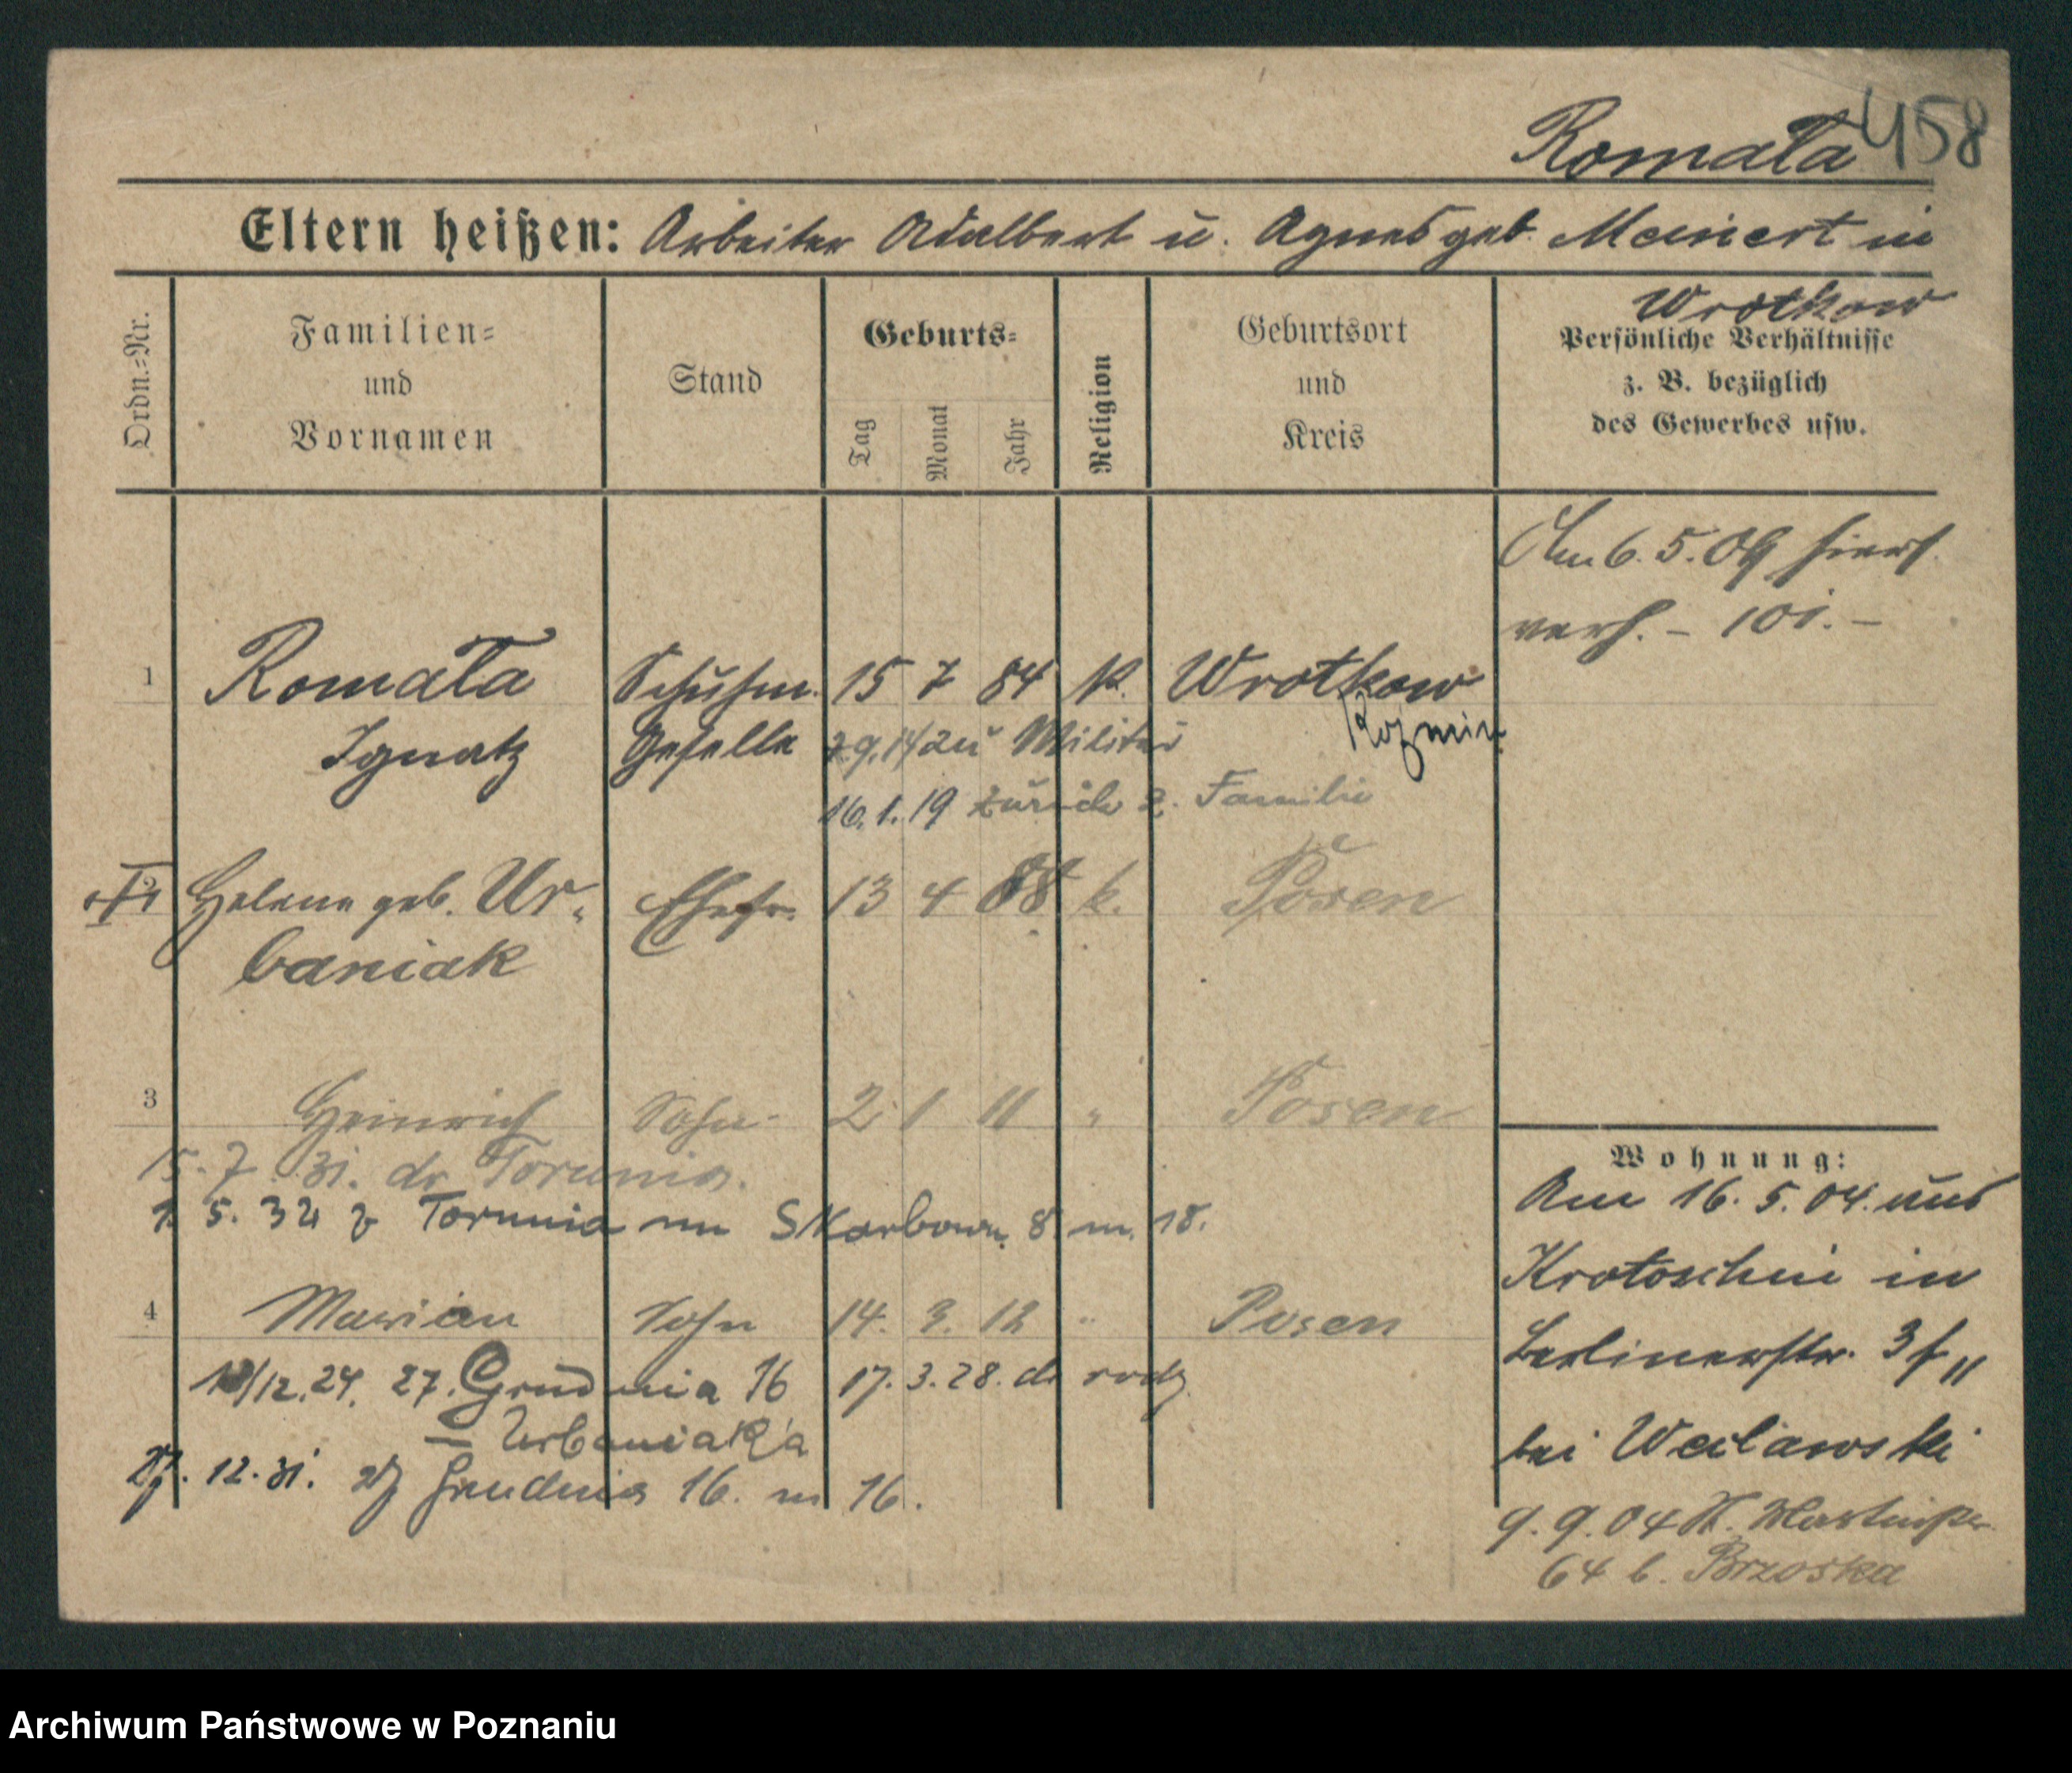 Romała 458
Eltern heißen: Arbeiter Adalbert u. Agnes geb. Meinert in
Wrotkow
Ordn.=Nr.
Familien=
und
Vornamen
Stand
Geburts=
Tag
Monat
Jahr
Religion
Geburtsort
und
Kreis
Persönliche Verhältnisse
z. B. bezüglich
des Gewerbes usw.
Am 6. 5. 09 hiers.
verh. – 101. –
1 Romała Schuhm. 15 7 84 k. Wrotkow
Ignatz Geselle 2.9.14 zu Militär Kozmin
16.1.19 zurück z. Familie
2 Helene geb. Ur- Ehefr. 13 4 88 k. Posen
baniak
3 Heinrich Sohn 2 1 11 " Posen
15. 7. 31. do Torunia.
1. 5. 32 z Torunia um Skarbowa 8 m. 18.
4 Marian Sohn 14. 3. 12 " Posen
12.24. 27. Grudnia 16 17. 3. 28. do rodz
– Urbaniaka
12. 31. 27 Grudnia 16. m 16.
Wohnung:
Am 16. 5. 04. aus
Krotoschin in
Berlinerstr. 3
bei Weclawski
9. 9. 04 St. Martinstr.
64 b. Brzoska
Archiwum Państwowe w Poznaniu